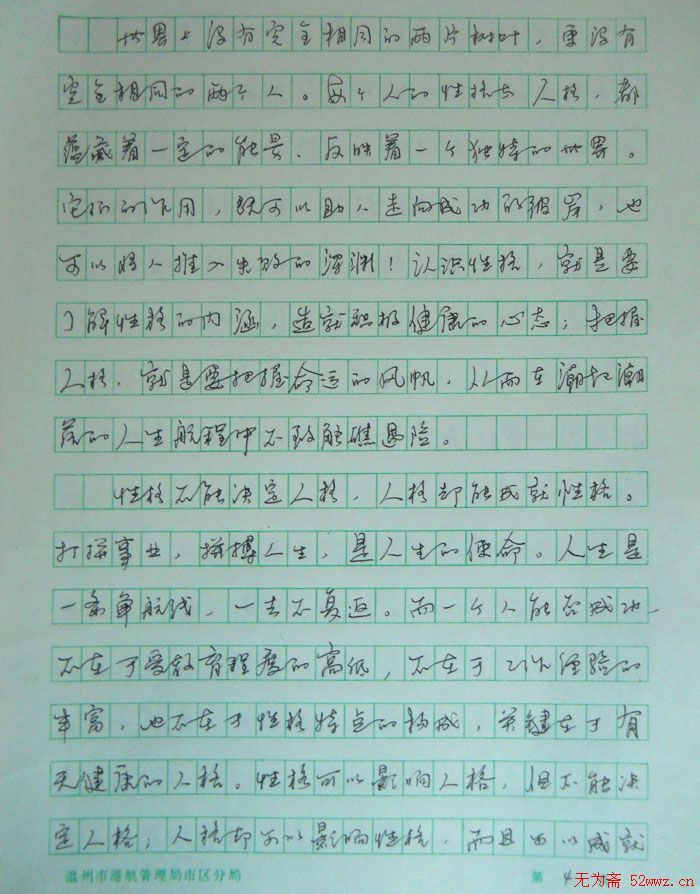 世界上没有完全相同的两片树叶，更没有
完全相同的两个人。每个人的性格与人格，都
蕴藏着一定的能量、反映着一个独特的世界。
它们的作用，既可以助人走向成功的彼岸，也
可以将人推入失败的深渊！认识性格，就是要
了解性格的内涵，造就积极健康的心态；把握
人格，就是要把握命运的风帆，从而在潮起潮
落的人生航程中不致触礁遇险。
性格不能决定人格，人格却能成就性格。
打拼事业，拼搏人生，是人生的使命。人生是
一条单航线，一去不复返。而一个人能否成功，
不在于受教育程度的高低，不在于工作经验的
丰富，也不在于性格特点的构成，关键在于有
无健康的人格。性格可以影响人格，但不能决
定人格；人格却可以影响性格，而且可以成就
温州市港航管理局市区分局 第 4
无为斋 52wwz.cn